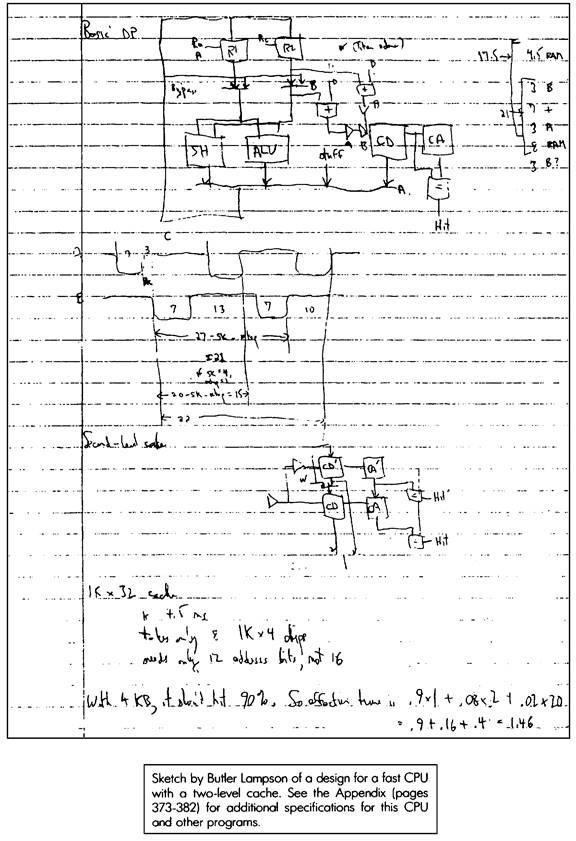 Basic DP
R1
R2
A
B
Bypass
D
D
17.5
4.5 RAM
3 B
7 +
21
3 A
8 RAM
3 B?
SH
ALU
stuff
B
CD
CA
A
=
Hit
C
7 3
B
7 13 7 10
27-sk-
= 21
20-sk- = 15
22
Second-level
CD'
CA'
W
CD
CA
= Hit'
= Hit
1K x 32 cache
takes only 8 1K x 4 chips
needs only 12 address bits, not 16
With 4 KB, it should hit 90%. So effective time is .9x1 + .08x2 + .02x20
= .9 + .16 + .4 = 1.46
Sketch by Butler Lampson of a design for a fast CPU
with a two-level cache. See the Appendix (pages
373-382) for additional specifications for this CPU
and other programs.